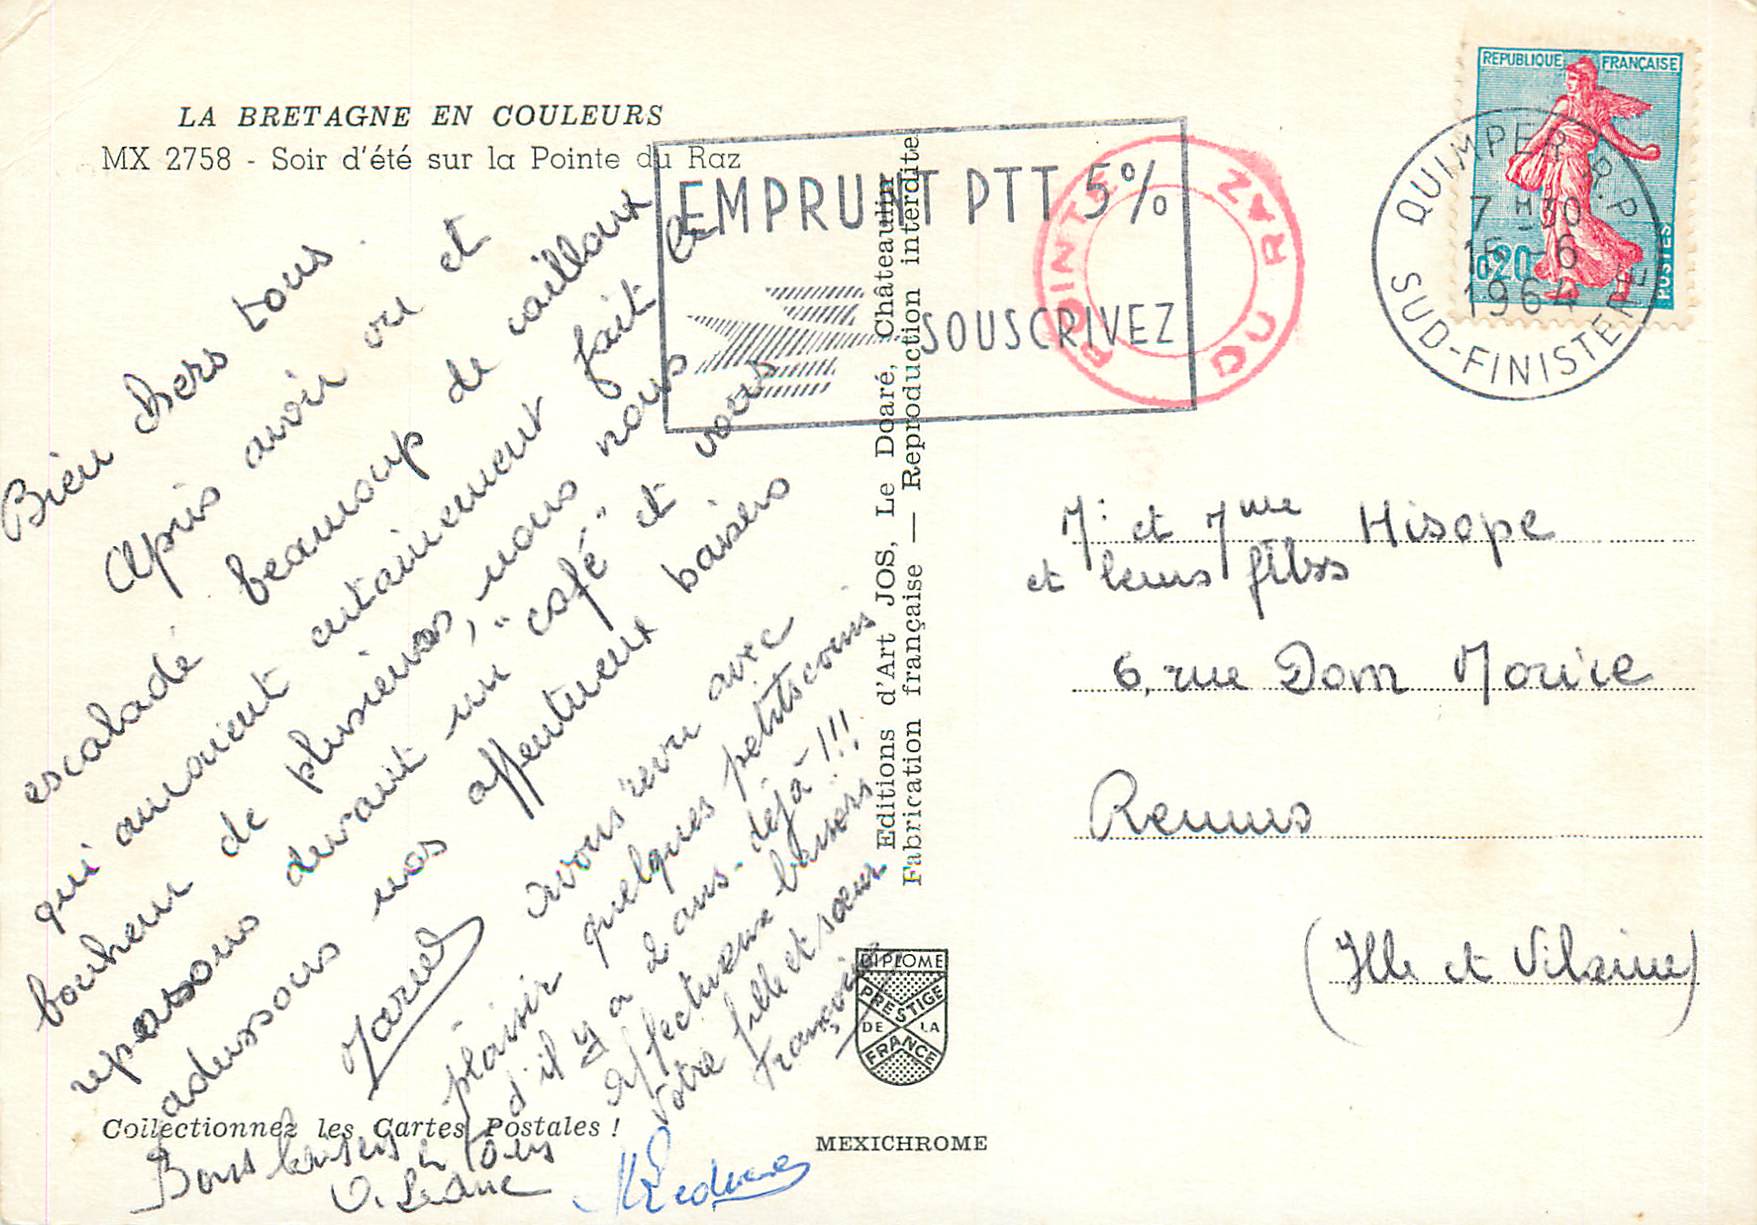 LA BRETAGNE EN COULEURS
MX 2758 - Soir d'été sur la Pointe du Raz
Bien chers tous.
Après avoir vu et
escaladé beaucoup de cailloux
qui auraient certainement fait le
bonheur de plusieurs, nous nous
reposons devant un "café" et vous
adressons nos affectueux baisers
Marie
avons revu avec
plaisir quelques petits coins
d'il y a 2 ans. déjà !!!
Affectueux baisers
Votre fille et sœur
Françoise
Collectionnez les Cartes Postales !
Bons baisers à Tous
O. Leduc
MLeduc
Editions d'Art JOS, Le Doaré, Châteaulin
Fabrication française — Reproduction interdite
DIPLOME
PRESTIGE
DE LA
FRANCE
MEXICHROME
EMPRUNT PTT 5%
SOUSCRIVEZ
POINTE DU RAZ
REPUBLIQUE FRANÇAISE
0,20
POSTES
QUIMPER R.P.
7 H 30
15 - 6
1964
SUD-FINISTERE
M. et Mme Hisope
et leurs fils
6, rue Dom Morice
Rennes
(Ille et Vilaine)